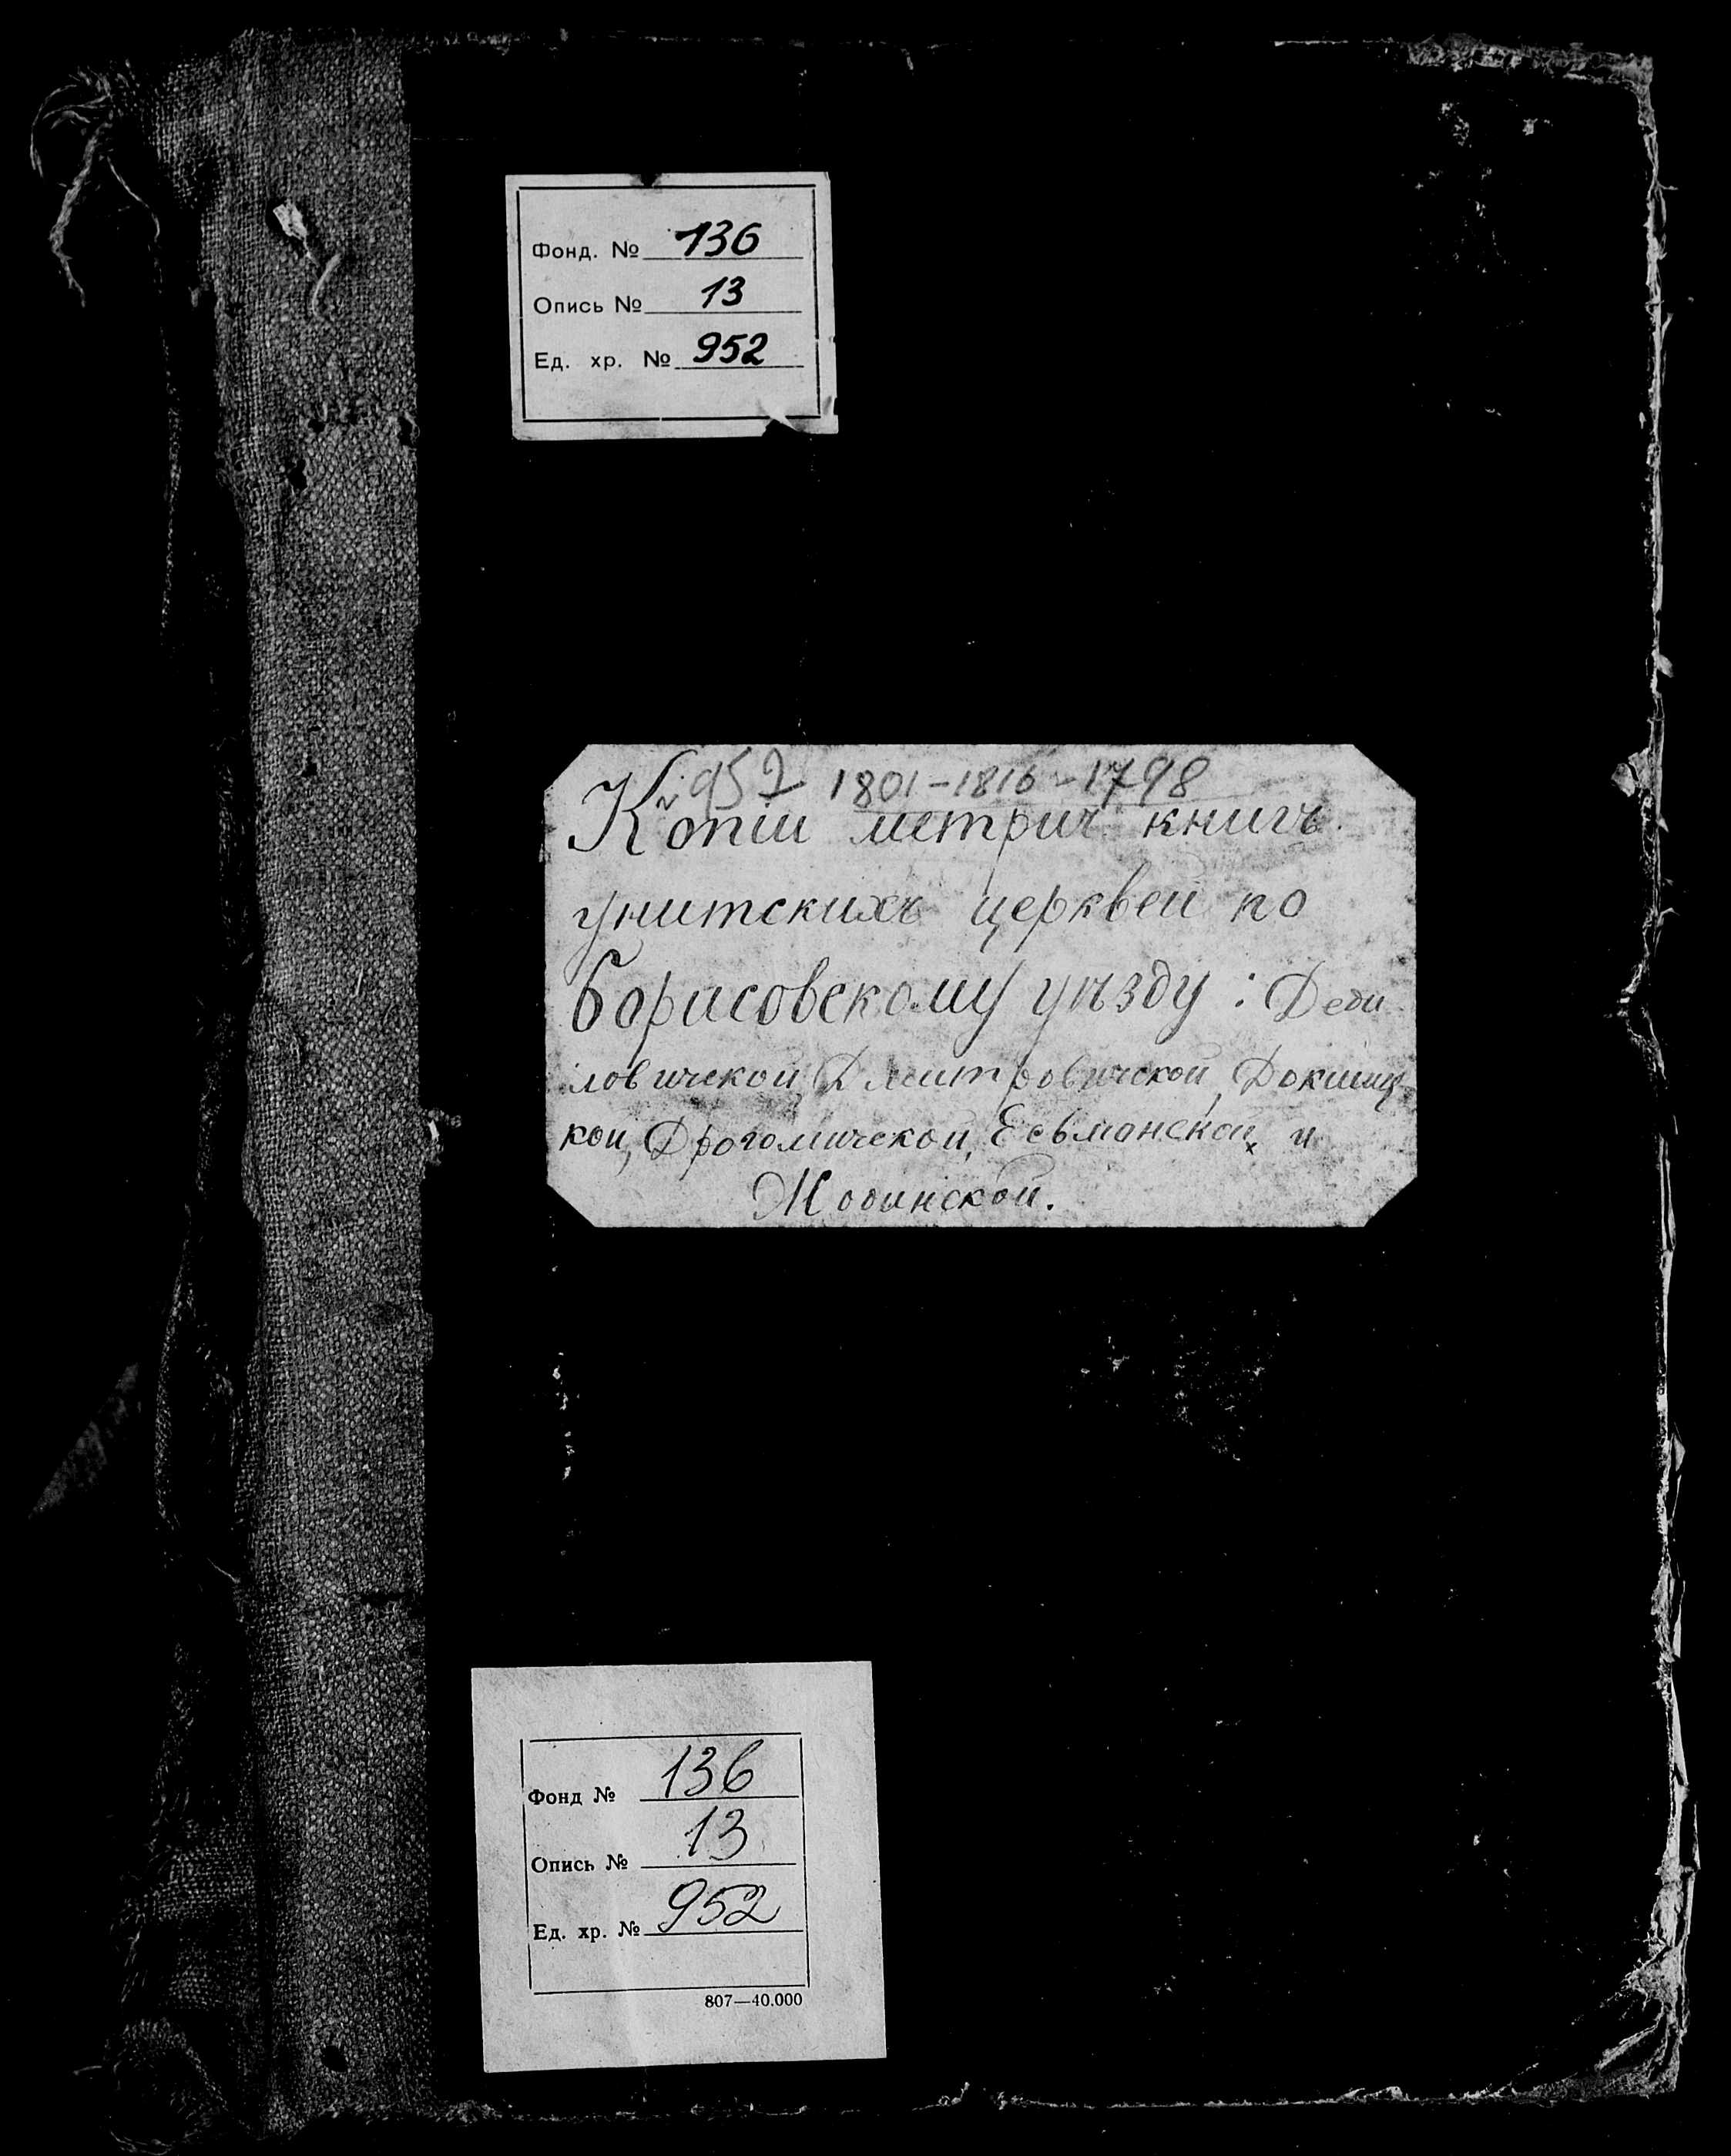 Фонд. № 136
Опись № 13
Ед. хр. № 952
№ 952 1801-1816-1798
Копіи метрич книгъ
унитскихъ церквей по
Борисовскому уѣзду: Деди
ловичской, Дмитровичской, Докшиц
кой, Дрогомичской, Есьманской и
Жовинской.
Фонд № 136
Опись № 13
Ед. хр. № 952
807—40.000